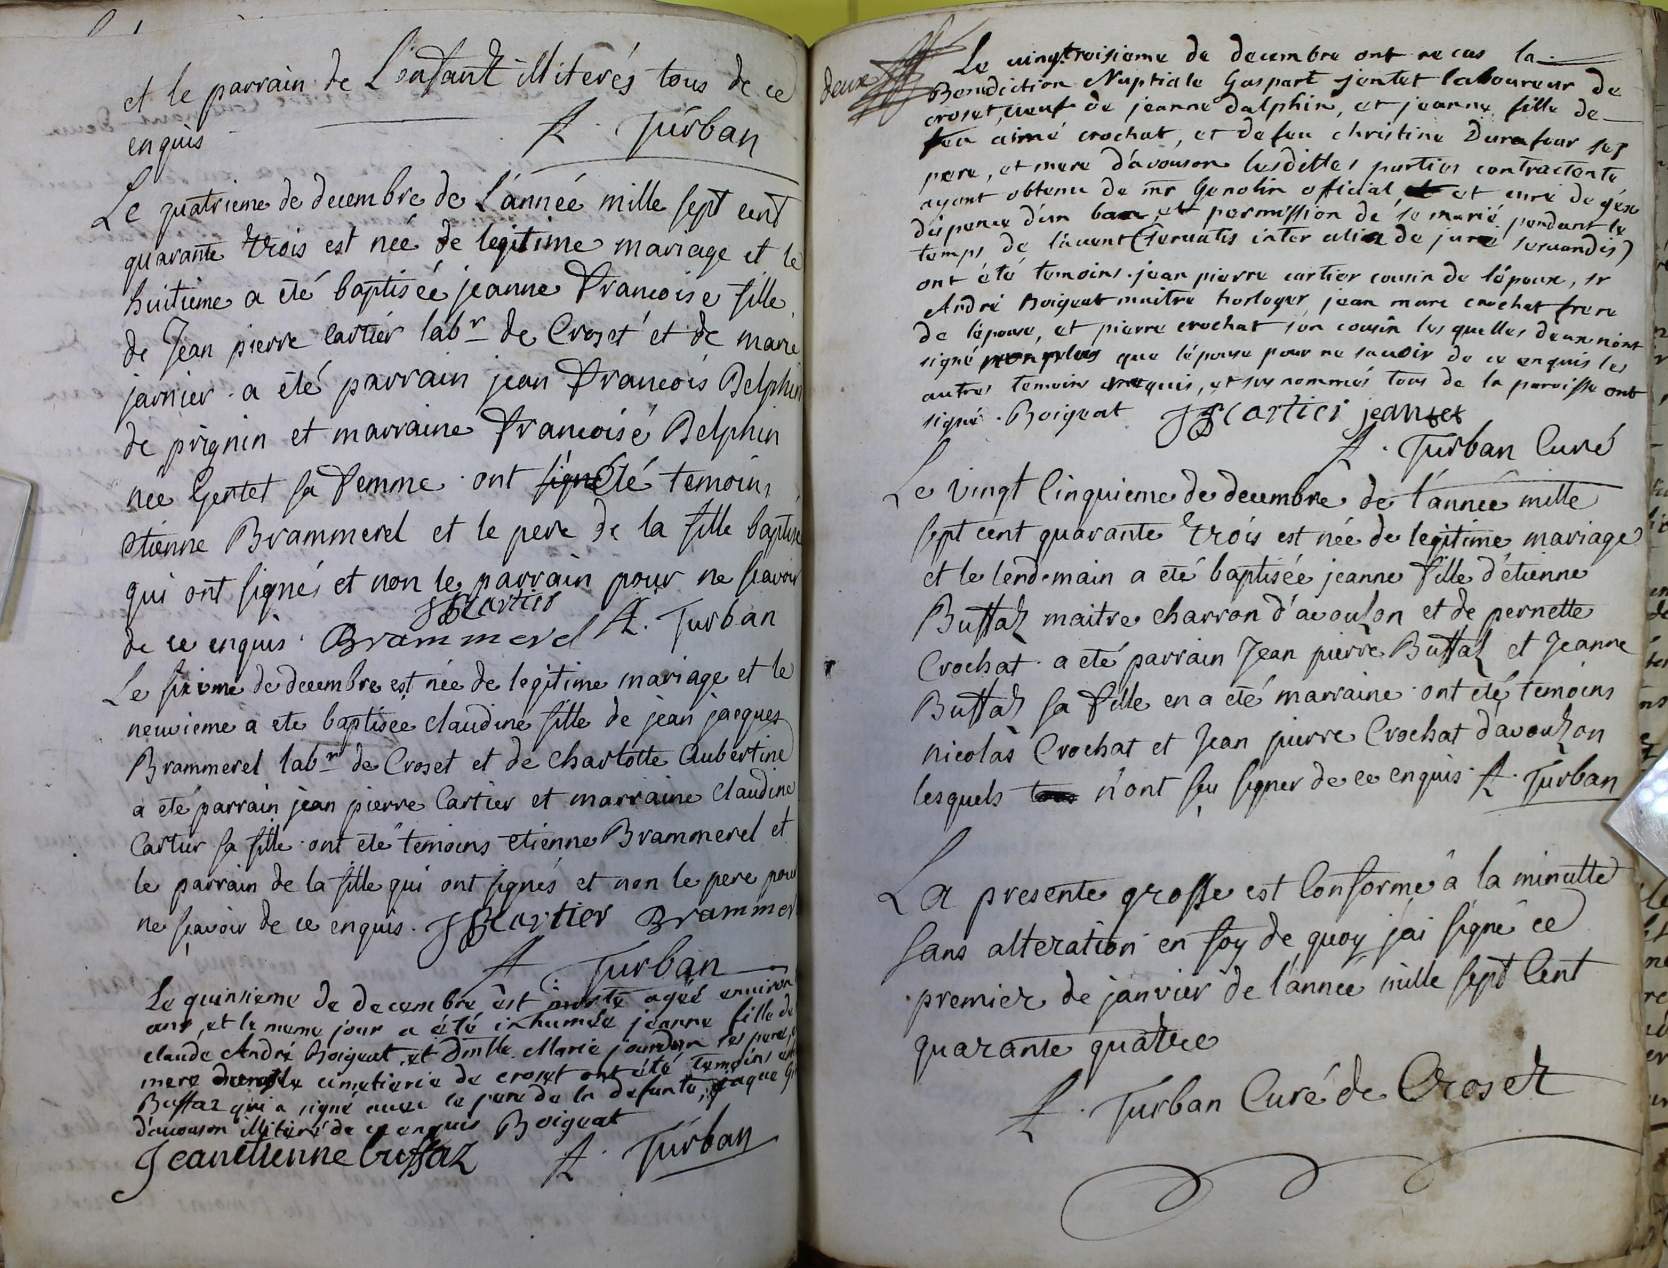 et le parrain de L'enfant illiterés tous de ce
enquis A. Turban
Le quatrieme de decembre de L'année mille sept cent
quarante trois est née de legitime mariage et le
huitieme a eté baptisée jeanne francoise fille
de Jean pierre Cartier labr de Croset et de marie
jarnier. a été parrain jean francois Delphin
de prignin et marraine francoise Delphin
née Gentet sa femme. ont signé été temoins
etienne Brammerel et le pere de la fille baptisé
qui ont signés et non le parrain pour ne scavoir
de ce enquis. JPCartier Brammerel A. Turban
Le sixieme de decembre est née de legitime mariage et le
neuvieme a ete baptisée claudine fille de jean jacques
Brammerel labr de Croset et de charlotte Aubertine
a eté parrain jean pierre Cartier et marraine claudine
Cartier sa fille. ont eté temoins etienne Brammerel et
le parrain de la fille qui ont signés et non le pere pour
ne scavoir de ce enquis. JPCartier Brammer
A. Turban
Le quinsieme de decembre est morte agée environ
ans, et le meme jour a été inhumée jeanne fille de
claude André Boigeat, et dmlle Marie jourdan ses pere,
mere cimetiere de croset ont été temoins
Buffaz qui a signé avec le pere de la defunte,
d'avouson illiteré de ce enquis Boigeat
Jean etienne buffaz A. Turban
deux
Le vingtroisieme de decembre ont recus la
Benediction Nuptiale Gaspart jentet laboureur de
croset, veuf de jeanne dalphin, et jeanne fille de
feu aimé crochat, et de feu christine Durafour ses
pere, et mere d'avouson lesdittes parties contractente
ayant obtenu de mr Genolin official et curé de géx
dispence d'un ban et permission de se marié pendant le
temps de l'avent (servatis inter alia de jure servandis)
ont été temoins. jean pierre cartier cousin de l'époux, sr
André Boigeat maitre horloger, jean marc crochat frere
de l'épouse, et pierre crochat son cousin les quelles deux n'ont
signé non plus que l'épouse pour ne scavoir de ce enquis les
autres temoins requis, et sus nommés tous de la paroisse ont
signé. Boigeat JPCartier jentet
A. Turban Curé
Le vingt Cinquieme de decembre de l'année mille
sept cent quarante trois est née de legitime mariage
et le lendemain a eté baptisée jeanne fille d'étienne
Buffaz maitre charron d'avouzon et de pernette
Crochat. a eté parrain Jean pierre Buffaz et Jeanne
Buffaz sa fille en a eté marraine. ont eté temoins
nicolas Crochat et Jean pierre Crochat d'avouzon
lesquels tous n'ont sçu signer de ce enquis. A. Turban
La presente grosse est Conforme â la minutte
sans alteration en foy de quoy j'ai signé ce
premier de janvier de l'année mille sept Cent
quarante quatre
A. Turban Curé de Croset